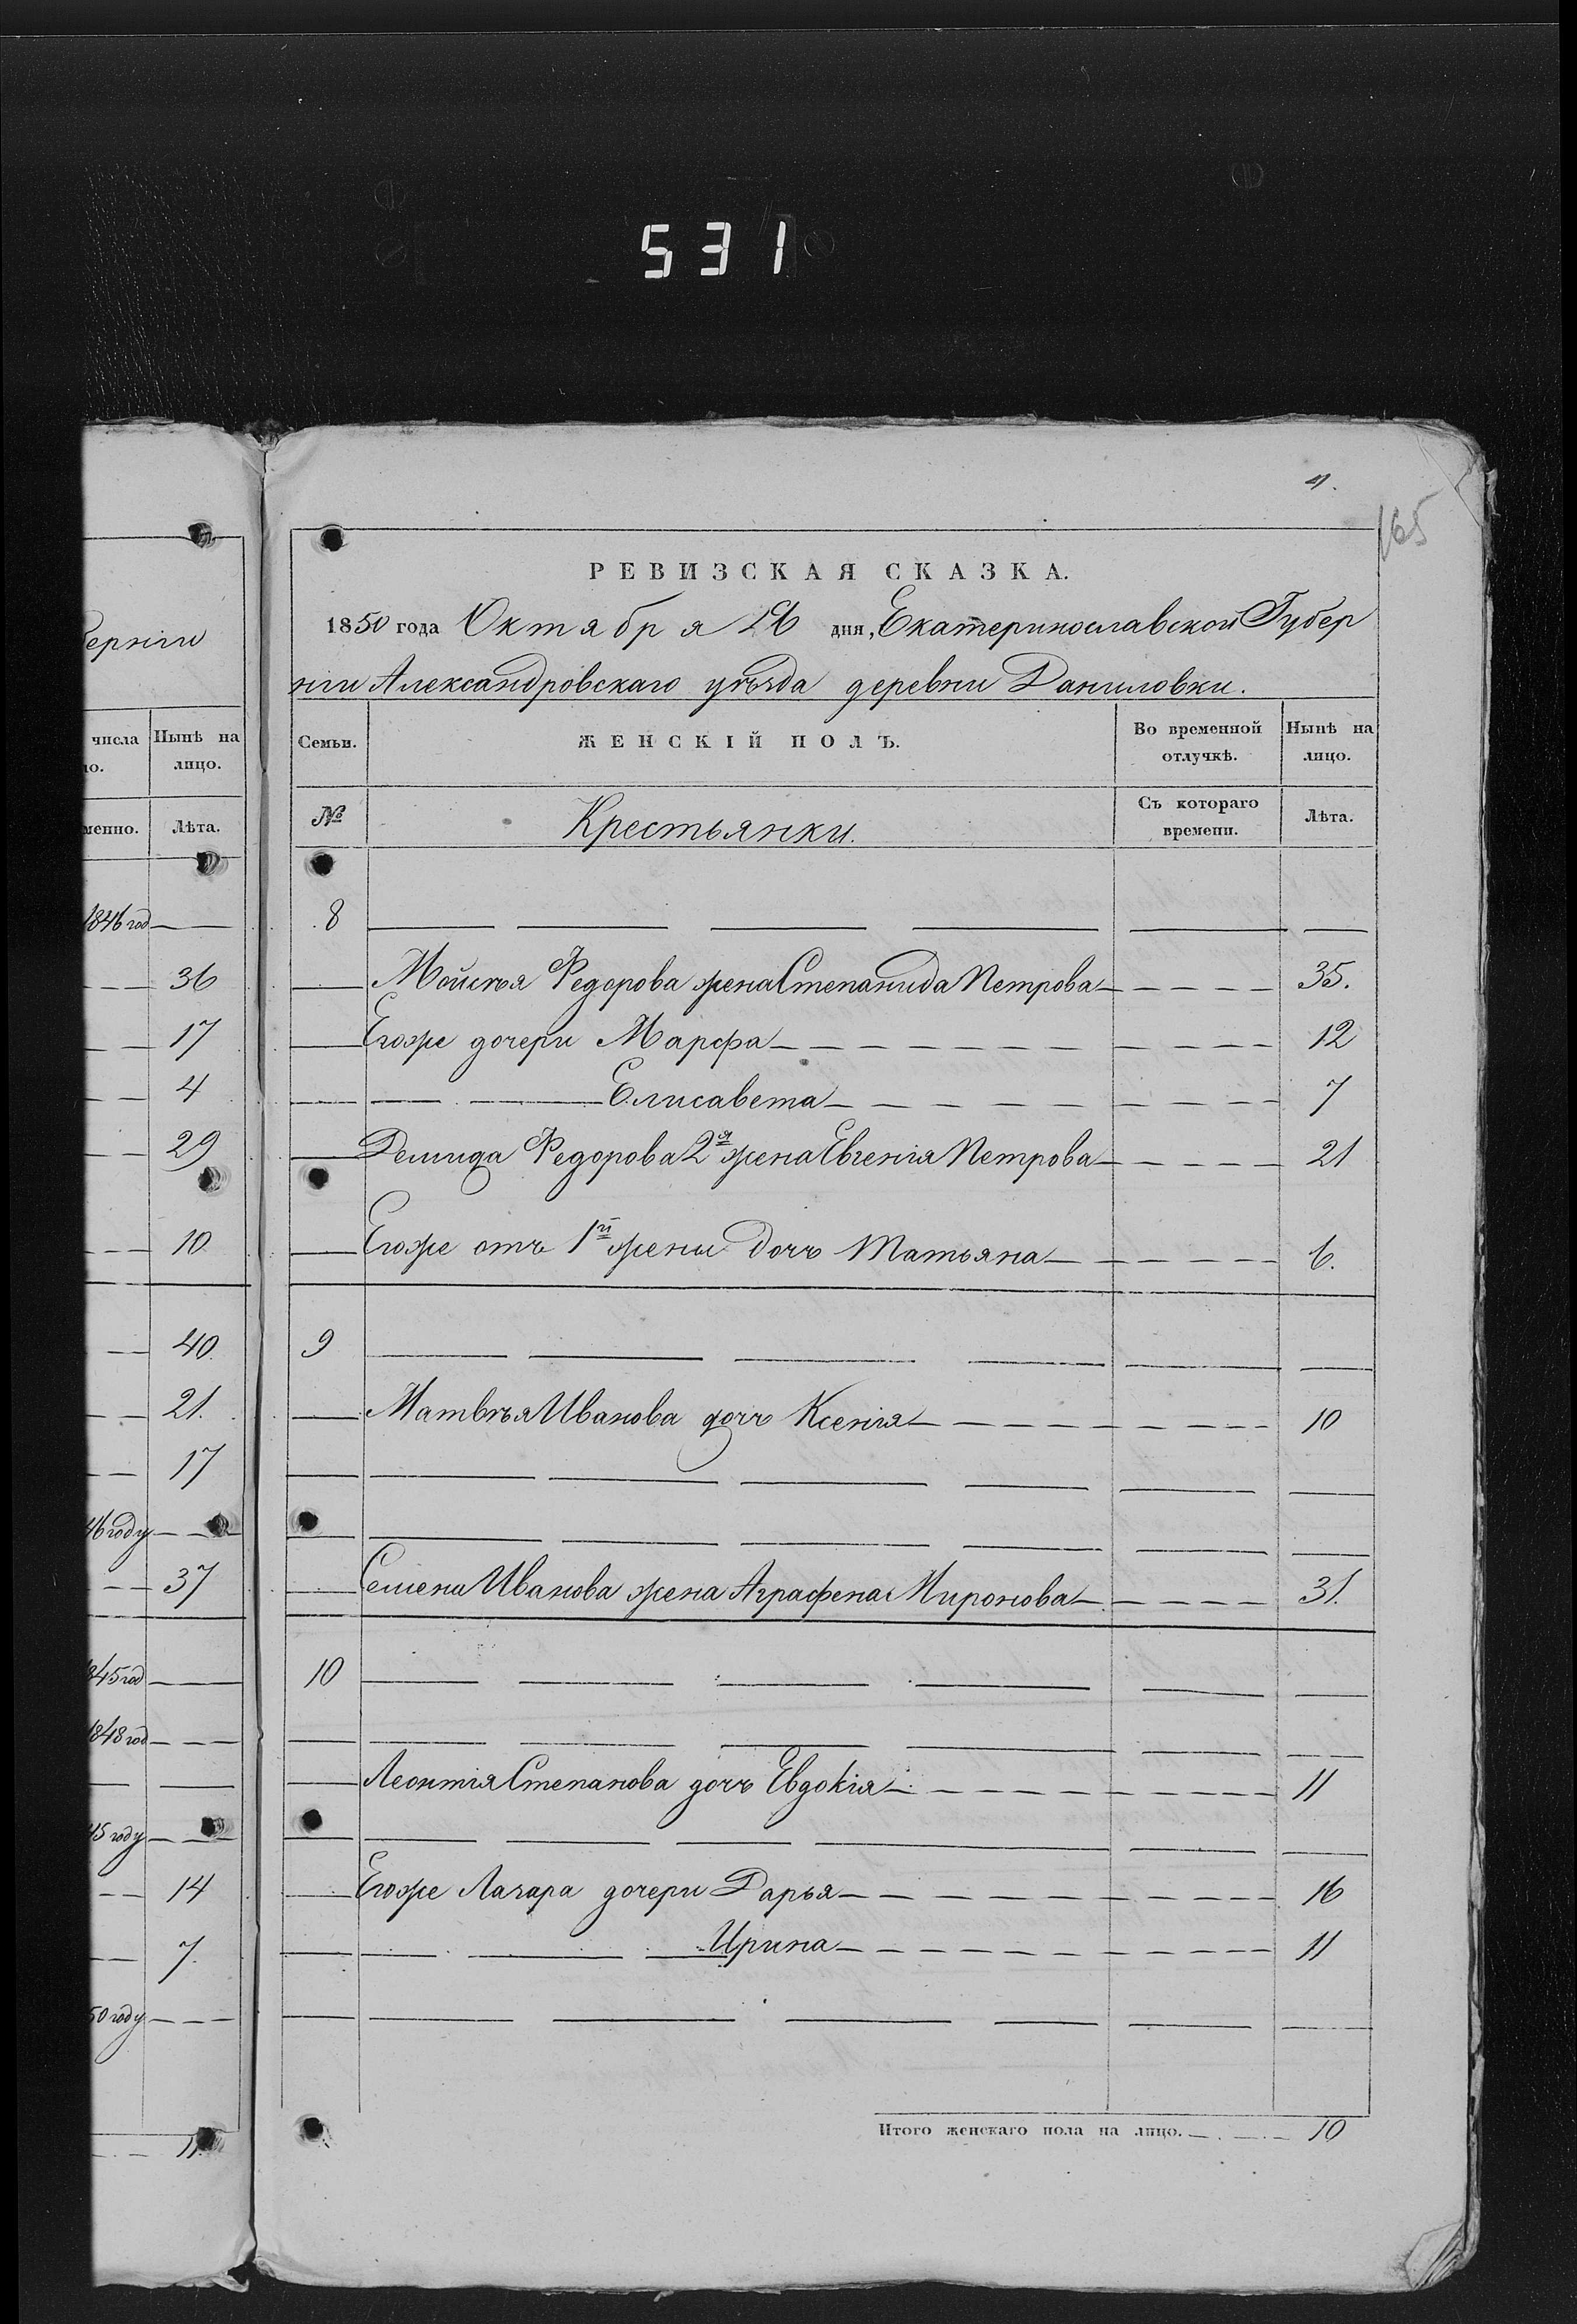 531
4.
165
РЕВИЗСКАЯ СКАЗКА.
1850 года Октября 16 дня, Екатеринославской Губер
ніи Александровскаго уѣзда деревни Даниловки.
Семьи. ЖЕНСКІЙ ПОЛЪ. Во временной отлучкѣ. Нынѣ на лицо.
№ Крестьянки. Съ котораго времени. Лѣта.
8
Мойсѣя Федорова жена Степанида Петрова 35.
Егоже дочери Марфа 12
Елисавета 7
Демида Федорова 2я жена Евгенія Петрова 21
Егоже отъ 1й жены дочь Татьяна 6.
9
Матвѣя Иванова дочь Ксенія 10
Семена Иванова жена Аграфена Миронова 31.
10
Леонтія Степанова дочь Евдокія 11
Егоже Лазара дочери Дарья 16
Ирина 11
Итого женскаго пола на лицо. 10
берніи
числа Нынѣ на
ло. лицо.
менно. Лѣта.
1846 год
36
17
4
29
10
40
21.
17
46 году
37
845 год
1848 год
45 году
14
7.
50 году
11